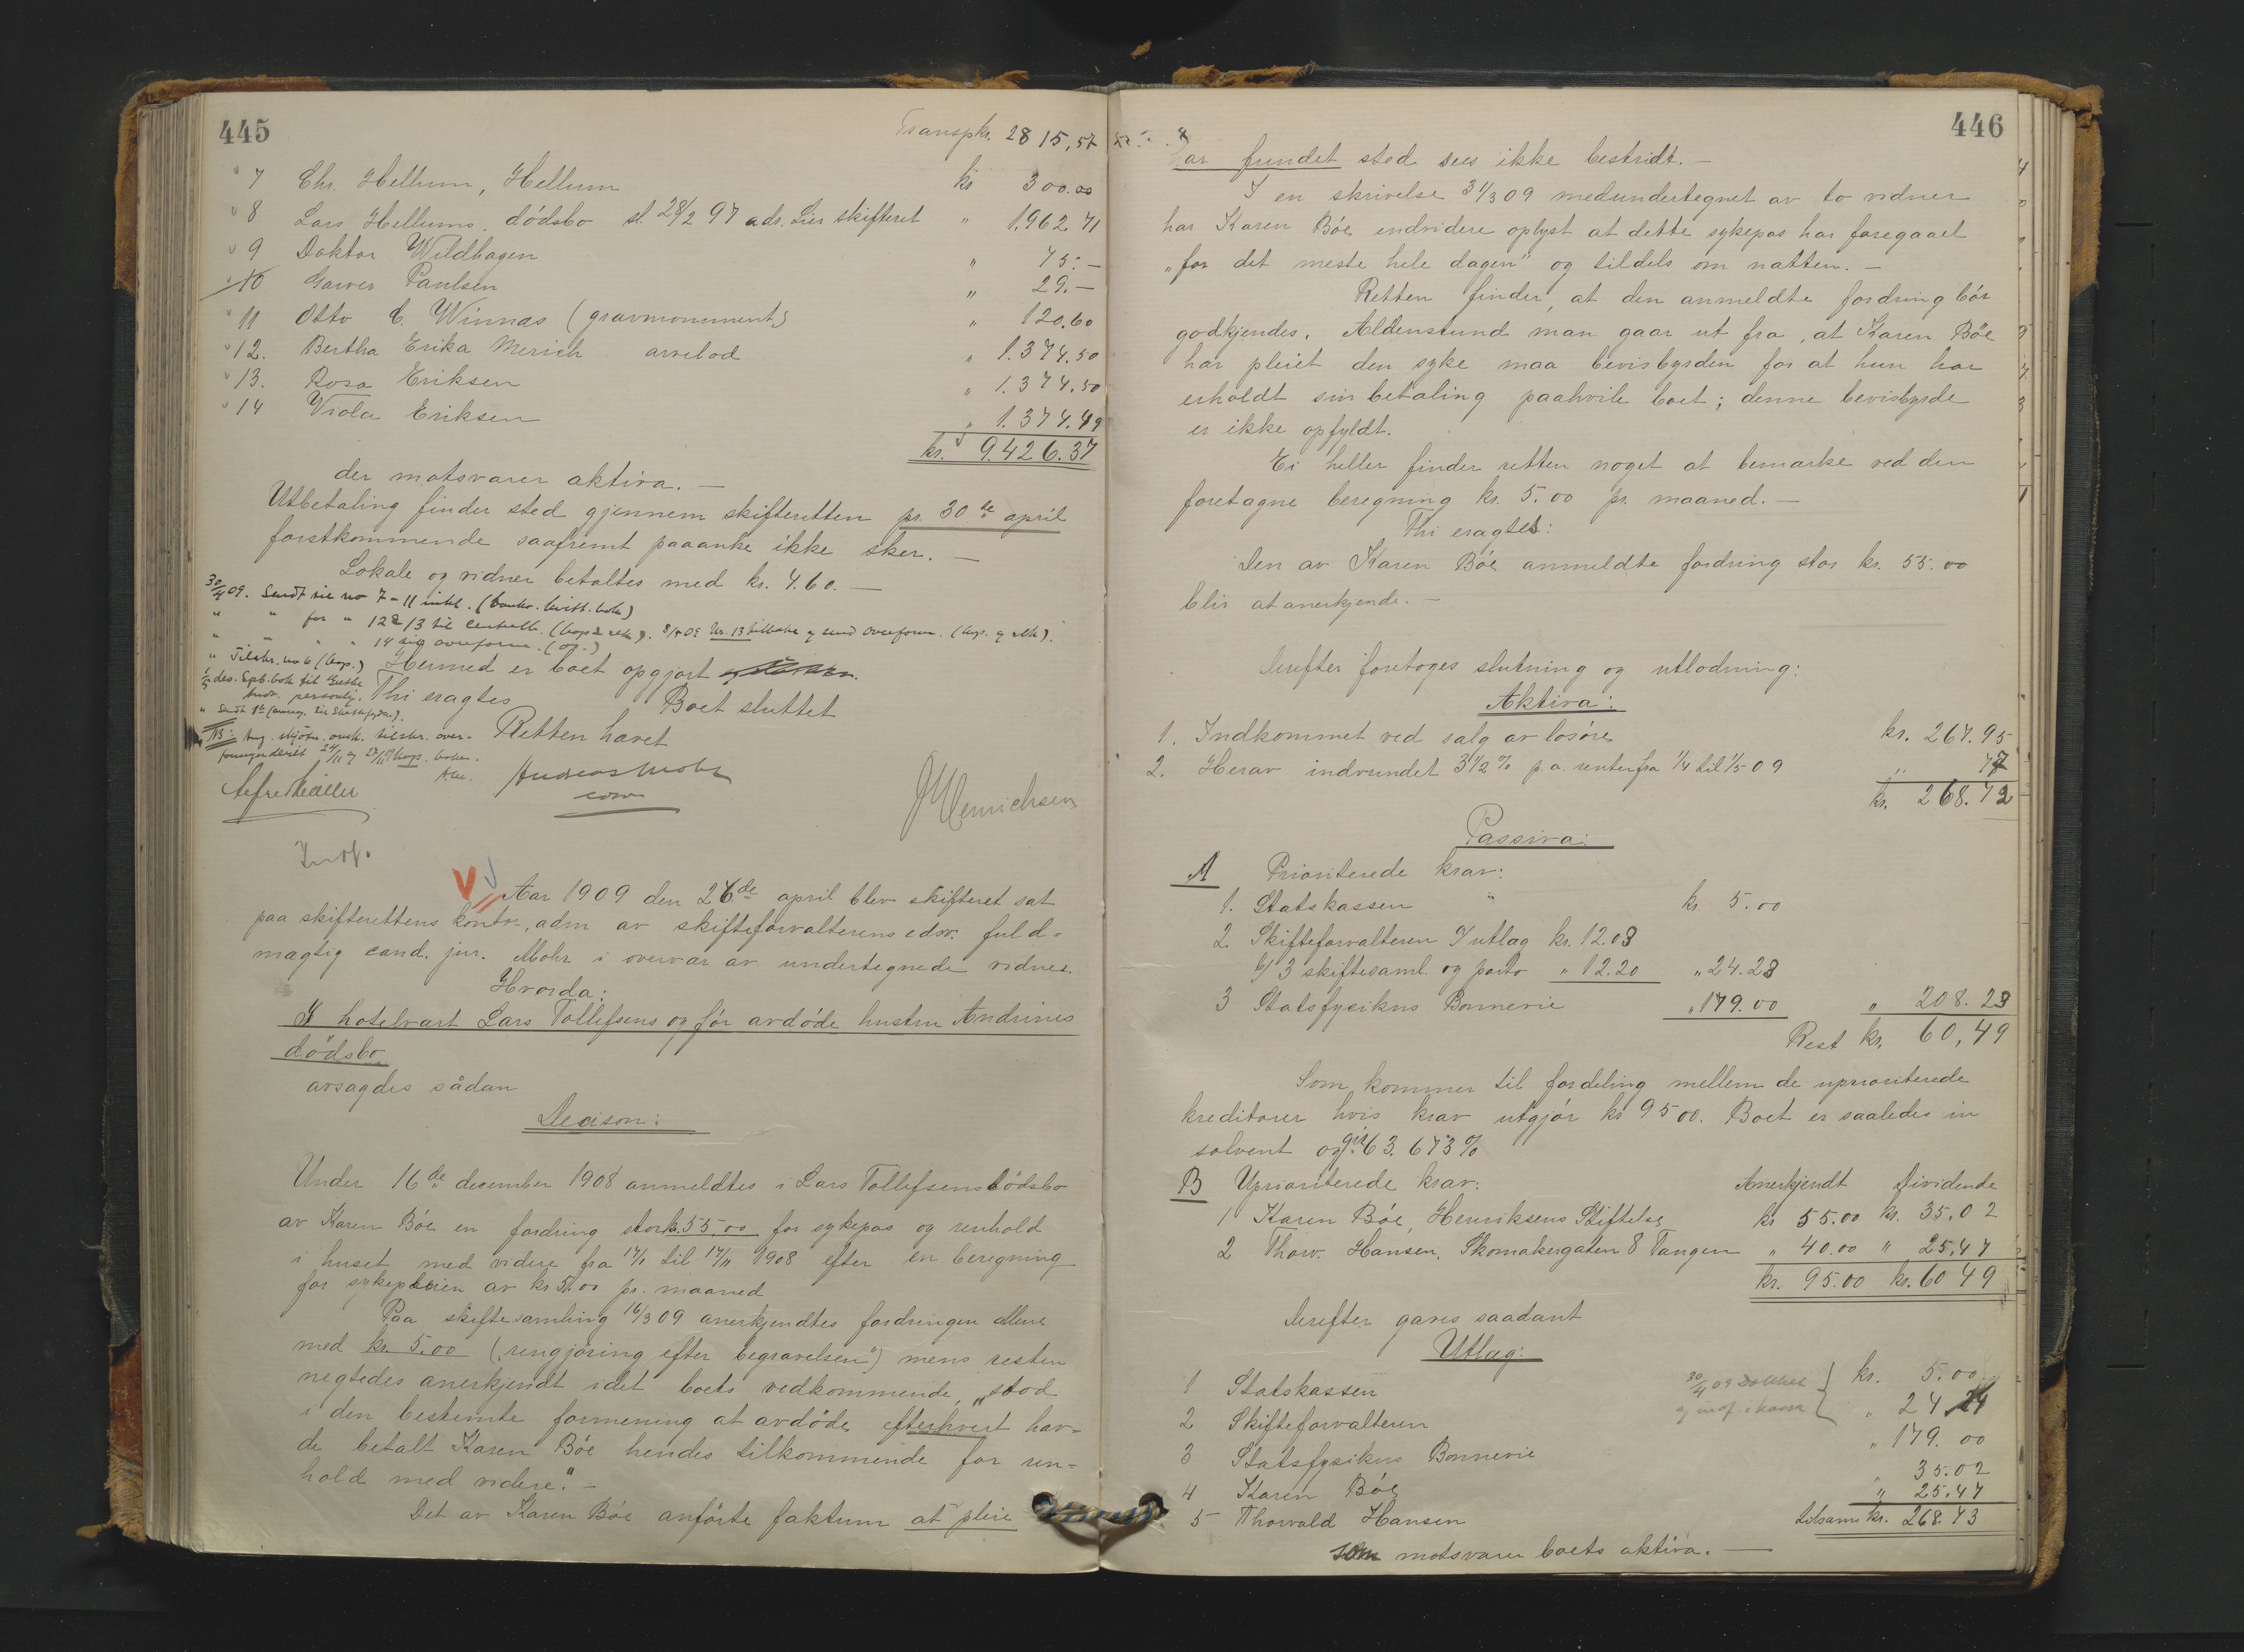 445
Transpkr. 2815,57
7 Chr. Hellum, Hellum kr 300.00
8 Lars Hellums dödsbo sl. 28/2 97 adr. Lier skifteret " 1.962.71
9 Doktor Wildhagen " 75.-
10 Garver Paulsen " 29.-
11 Otto C. Winnas (gravmonument) " 120.60
12. Bertha Erika Merich arvelod " 1.374.50
13. Rosa Eriksen " 1.374.50
14 Viola Eriksen " 1.374.49
kr. 9.426.37
der motsvarer aktiva. —
Utbetaling finder sted gjennem skifteretten pr. 30te april
førstkommende saafremt paaanke ikke sker. —
Lokale og vidner betaltes med kr. 4.60. —
30/4 09. Sendt til no 7-11 inkl.
" " for " 12 & 13 til
" " " " 14 til overform.
Hermed er boet opgjort
Thi eragtes
Boet sluttet
Retten hævet
Andreas Mohr
const
JHenrichsen
Aar 1909 den 26de april blev skifteret sat
paa skifterettens kontor, adm av skifteforvalterens edsv. fuld-
mægtig cand. jur. Mohr i overvær av undertegnede vidner.
Hvorda:
I hotelvært Lars Tollefsens og før avdöde hustru Andrines
dödsbo
avsagdes sådan
Decison:
Under 16de december 1908 anmeldtes i Lars Tollefsens dödsbo
av Karen Böe en fordring stor kr. 55.00 for sykepas og renhold
i huset med videre fra 17/1 til 17/11 1908 efter en beregning
for sykepleien av kr 5.00 pr. maaned
Paa skiftesamling 16/3 09 anerkjendtes fordringen alene
med kr. 5.00 („rengjöring efter begravelsen") mens resten
negtedes anerkjendt idet boets vedkommende „stod
i den bestemte formening at avdöde efterhvert hav-
de betalt Karen Böe hendes tilkommende for ren-
hold med videre". —
Det av Karen Böe anförte faktum at pleie
446
har fundet sted sees ikke bestridt. —
I en skrivelse 31/3 09 medundertegnet av to vidner
har Karen Böe endvidere oplyst at dette sykepas har foregaaet
„for det meste hele dagen" og tildels om natten. —
Retten finder, at den anmeldte fordring bör
godkjendes. Aldenstund man gaar ut fra, at Karen Böe
har pleiet den syke maa bevisbyrden for at hun har
erholdt sin betaling paahvile boet; denne bevisbyrde
er ikke opfyldt.
Ei heller finder retten noget at bemærke ved den
foretagne beregning kr. 5.00 pr. maaned. —
Thi eragtes:
Den av Karen Böe anmeldte fordring stor kr. 55.00
blir at anerkjende. —
Derefter foretoges slutning og utlodning:
Aktiva:
1. Indkommet ved salg av lösöre kr. 267.95
2. Herav indvundet 3 1/2 % p.a. renter fra 1/4 til 1/5 09 " 77
kr. 268.72
Passiva:
A Prioriterede krav:
1. Statskassen kr. 5.00
2. Skifteforvalteren a/ utlæg kr. 12.08
b/ 3 skiftesaml. og porto " 12.20 " 24.28
3 Statsfysikus Bonnevie " 179.00 " 208.23
Rest kr. 60,49
Som kommer til fordeling mellem de uprioriterede
kreditorer hvis krav utgjör kr 95 00. Boet er saaledes in
solvent og gir 63.673 %
B Uprioriterede krav: Anerkjendt Dividende
1 Karen Böe, Henriksens Stiftelse kr 55.00 kr. 35,02
2 Thorv. Hansen, Skomakergaten 8 Tangen " 40.00 " 25,47
kr. 95.00 kr. 60 49
Derefter gaves saadant
Utlæg:
1 Statskassen kr. 5.00
2 Skifteforvalteren " 24 24
3 Statsfysikus Bonnevie " 179.00
4 Karen Böe " 35.02
5 Thorvald Hansen " 25.47
tilsam kr. 268.73
som motsvarer boets aktiva. —